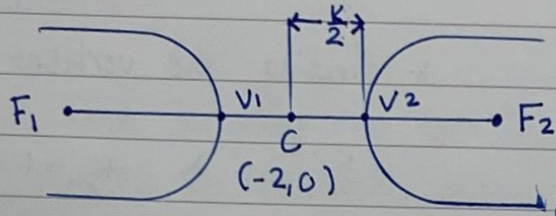 K/2
F₁ V1 C V2 F₂
(-2,0)